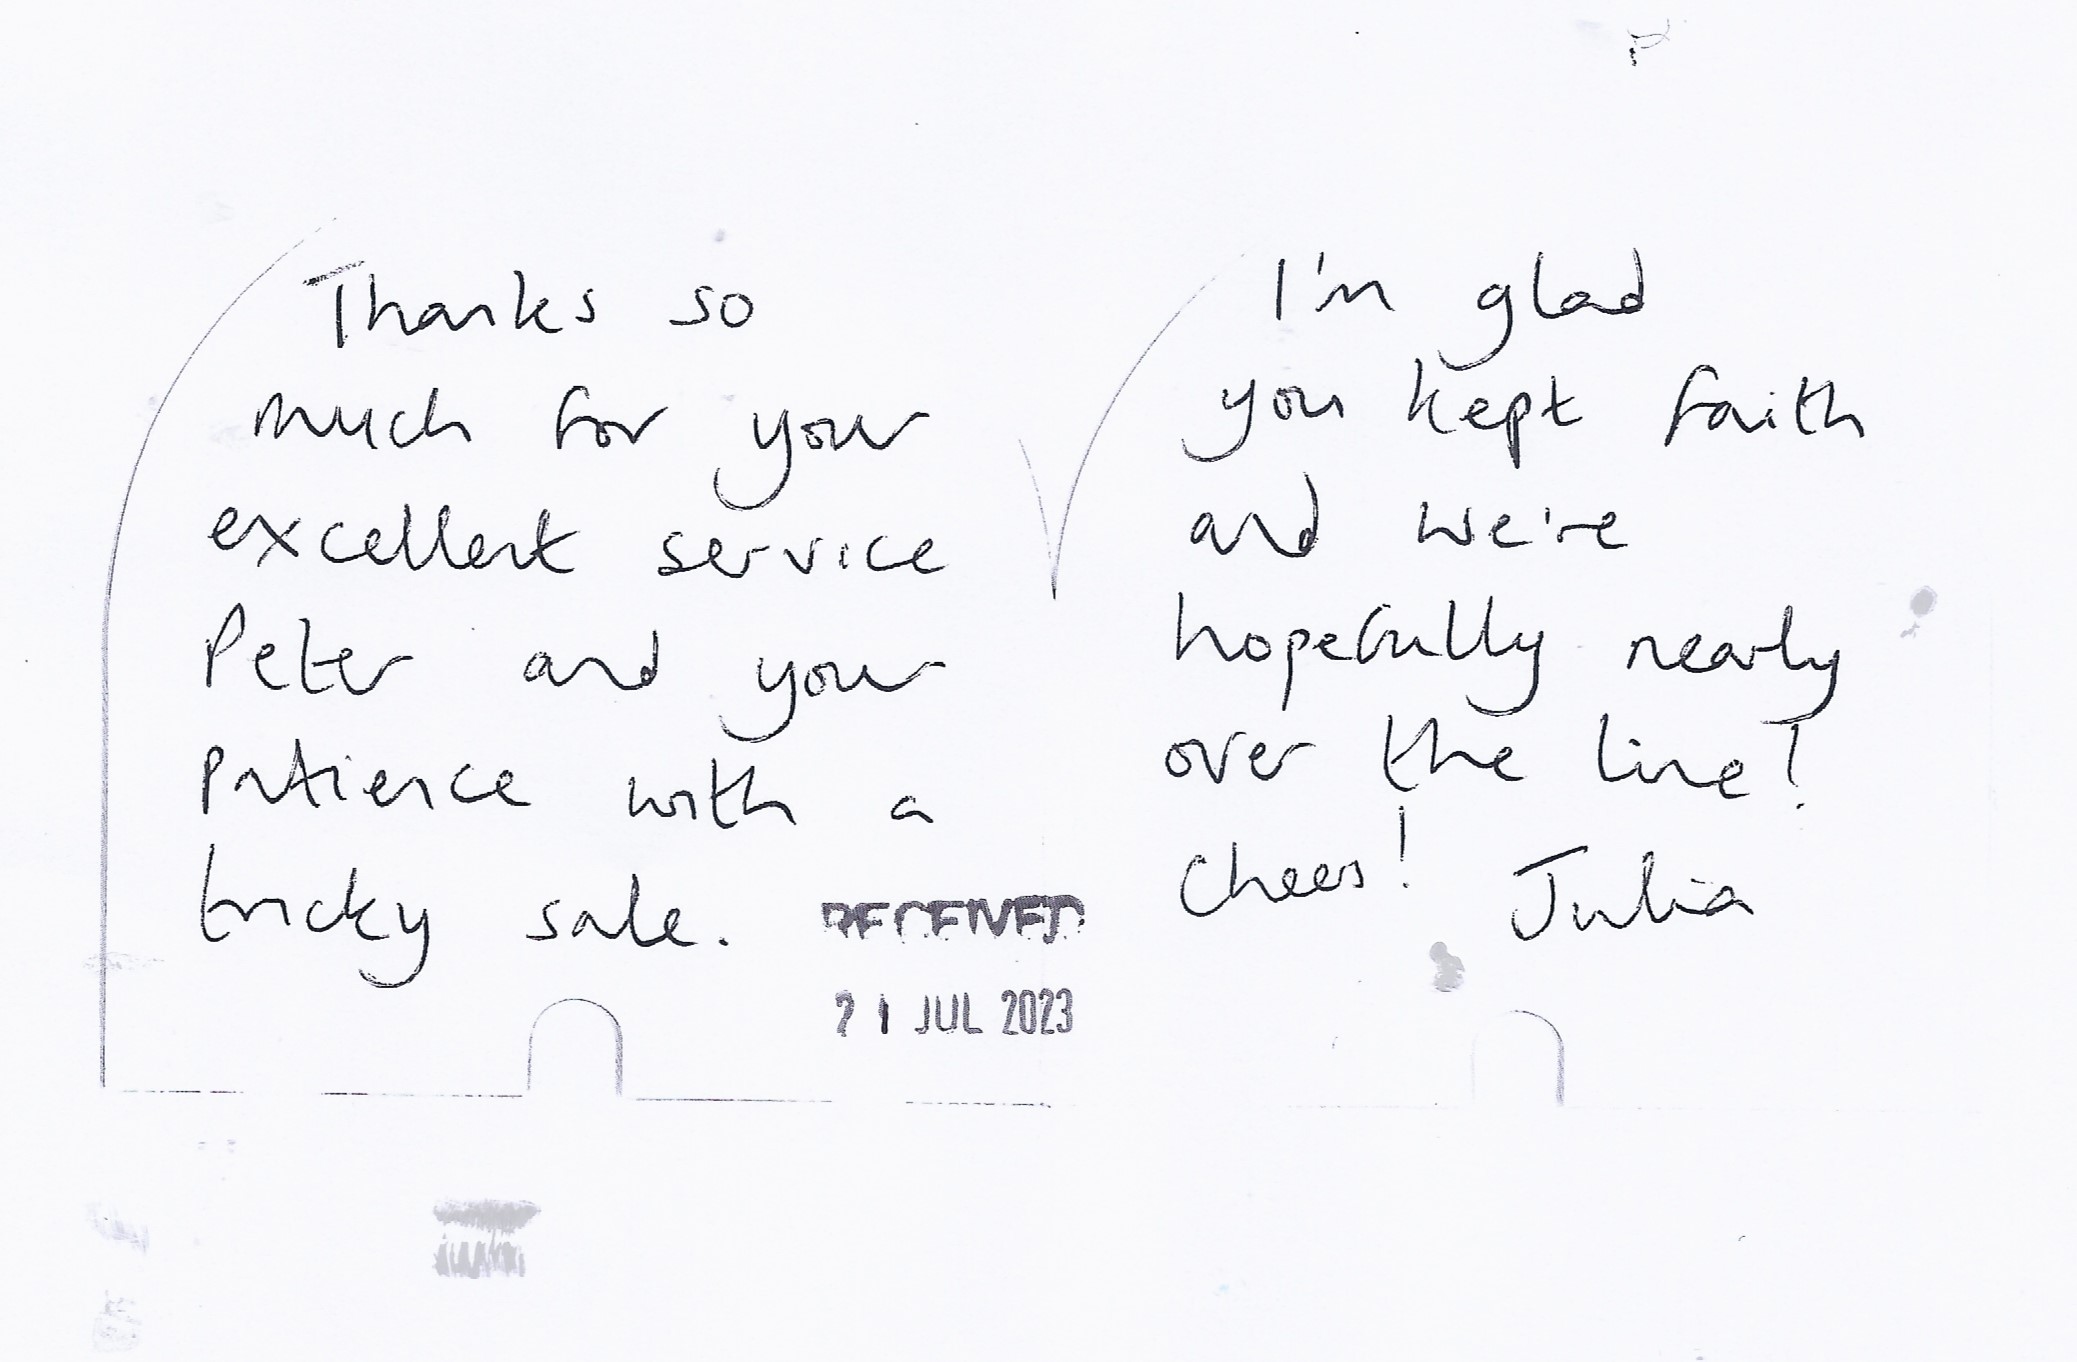 Thanks so
much for your
excellent service
Peter and your
patience with a
tricky sale.
RECEIVED
21 JUL 2023
I'm glad
you kept faith
and we're
hopefully nearly
over the line!
Cheers! Julia